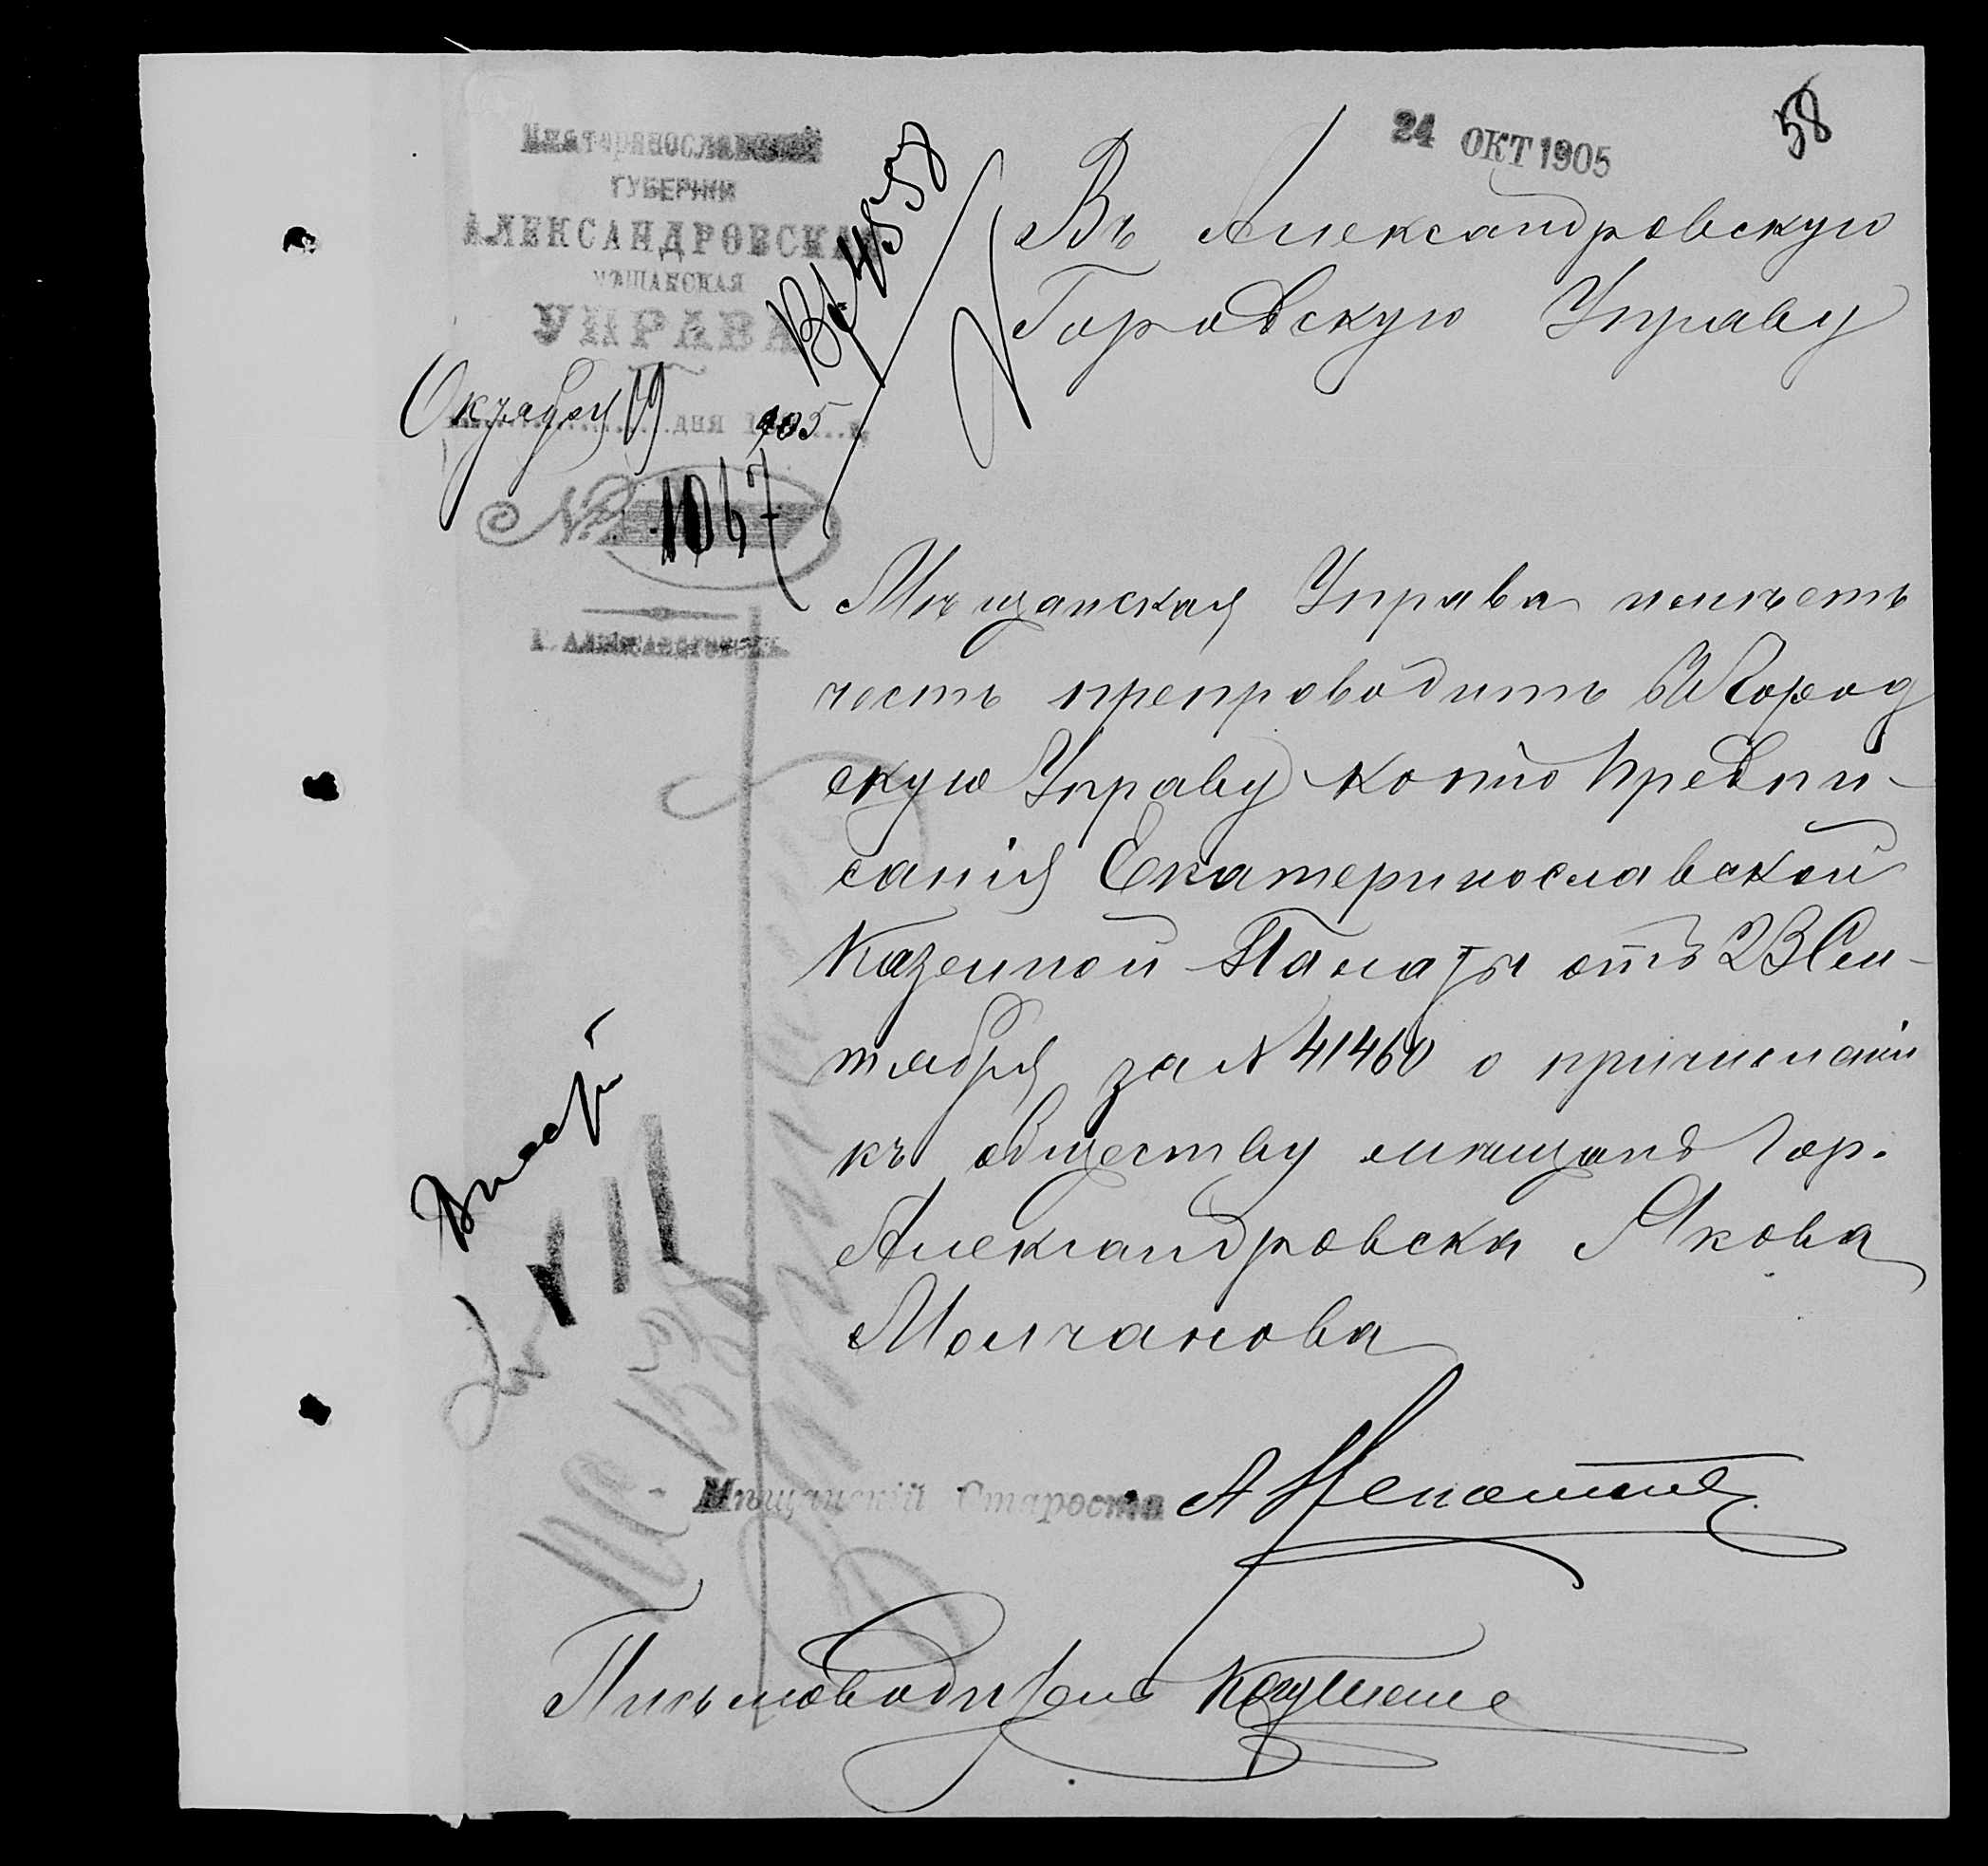 24 ОКТ 1905
58
Екатеринославской
ГУБЕРНІИ
АЛЕКСАНДРОВСКАЯ
МѢЩАНСКАЯ
УПРАВА
Октября 19 дня 1905 г.
№ 1067
Г. АЛЕКСАНДРОВСКЪ.
Вх 4858
Въ Александровскую
Городскую Управу
Мѣщанская Управа имѣетъ
честь препроводить въ Город
скую Управу копію предпи-
санія Екатеринославской
Казенной Палаты отъ 23 Сен-
тября за № 41460 о причисленіи
къ обществу мѣщанъ Гор.
Александровска Якова
Молчанова
Мѣщанскій Староста А
Письмоводитель